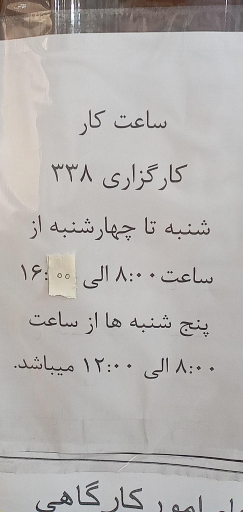 ساعت کار
کارگزاری ۳۳۸
شنبه تا چهارشنبه از
ساعت ۸:۰۰ الی ۱۶:۰۰
پنج شنبه ها از ساعت
۸:۰۰ الی ۱۲:۰۰ میباشد.
امور کارگاهی